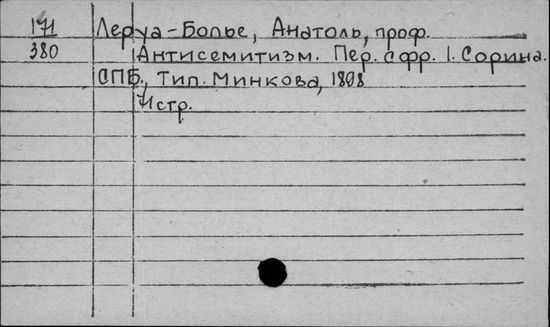 171 Леруа-Болье, Анатоль, проф.
380 Антисемитизм. Пер. с фр. I. Сорина.
СПБ., Тип. Минкова, 1898
71 стр.